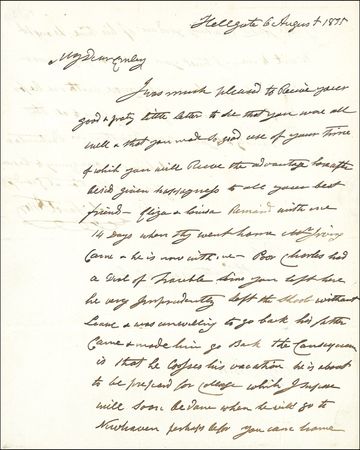 Hellgate 6 August 18
My Dear Emily
I was much pleased to Recive your
good & prety little letter to se that you were all
well & that you made so good use of your Time
of which you will Recive the advantage hereafter
besids given happyness to all youer best
friend – Eliza & Louisa Remand with me
14 days when thy went home Mr Irving
Came & he is now with me – Poor Charles had
a Deal of Trouble Sins you left here
he very Imprudently left the Shool without
Leave & was unwiling to go back his father
Came & made him go Back the Consequence
is that he looses his vacation he is about
to be prepaid for College which I supose
will soon be done when he will go to
Newhaven perhaps befor you came home